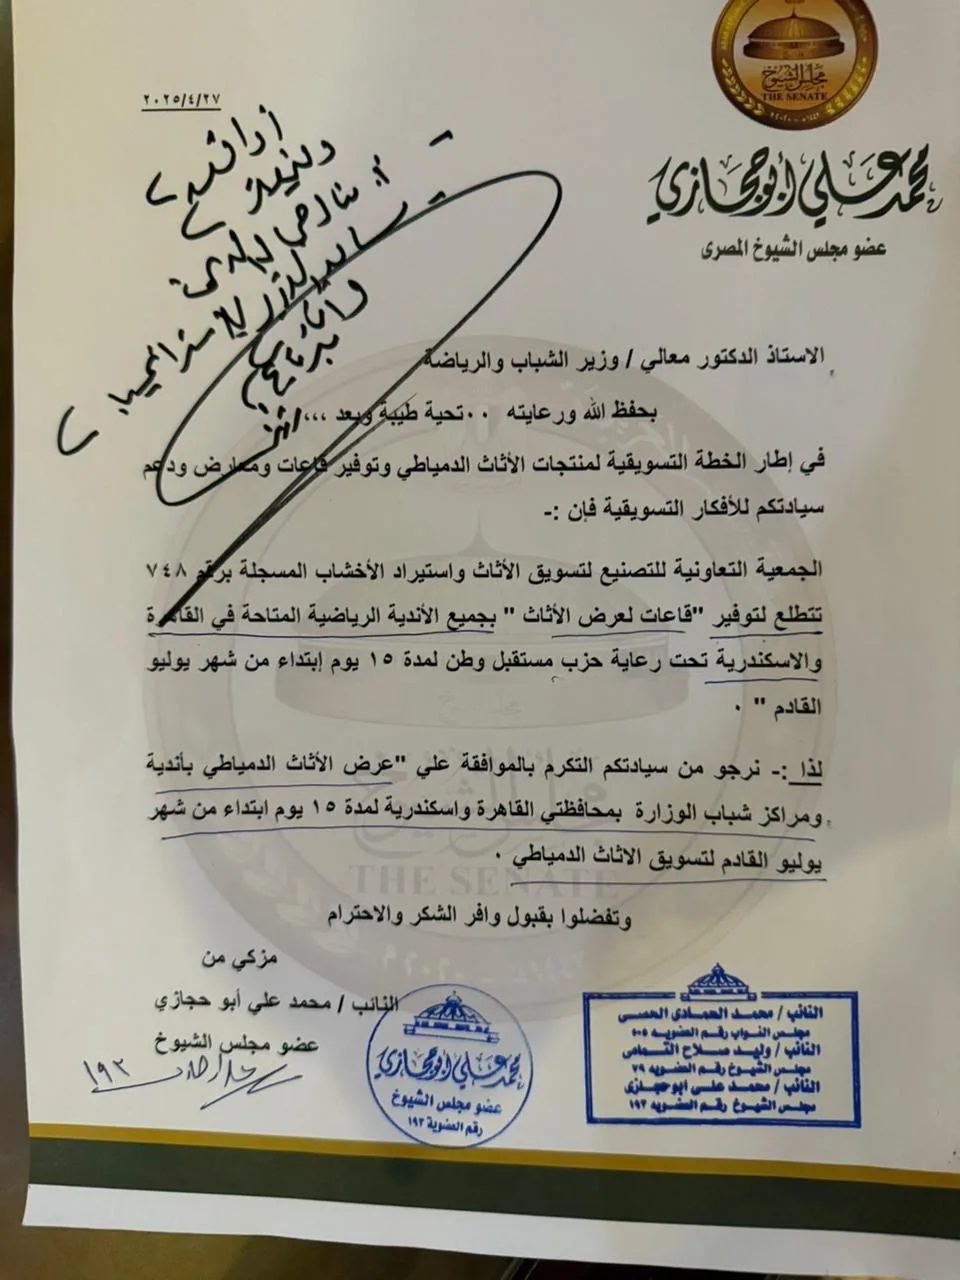 مجلس الشيوخ
THE SENATE
محمد علي أبو حجازي
عضو مجلس الشيوخ المصرى
٢٠٢٥/٤/٢٧
الاستاذ الدكتور معالي / وزير الشباب والرياضة
بحفظ الله ورعايته ٠٠ تحية طيبة وبعد ،،،
في إطار الخطة التسويقية لمنتجات الأثاث الدمياطي وتوفير قاعات ومعارض ودعم
سيادتكم للأفكار التسويقية فإن :-
الجمعية التعاونية للتصنيع لتسويق الأثاث واستيراد الأخشاب المسجلة برقم ٧٤٨
تتطلع لتوفير "قاعات لعرض الأثاث " بجميع الأندية الرياضية المتاحة في القاهرة
والاسكندرية تحت رعاية حزب مستقبل وطن لمدة ١٥ يوم إبتداء من شهر يوليو
القادم " ٠
لذا :- نرجو من سيادتكم التكرم بالموافقة علي "عرض الأثاث الدمياطي بأندية
ومراكز شباب الوزارة بمحافظتي القاهرة واسكندرية لمدة ١٥ يوم ابتداء من شهر
يوليو القادم لتسويق الاثاث الدمياطي ٠
THE SENATE
وتفضلوا بقبول وافر الشكر والاحترام
مزكي من
النائب / محمد علي أبو حجازي
عضو مجلس الشيوخ
١٩٢
محمد علي أبو حجازي
عضو مجلس الشيوخ
رقم العضوية ١٩٢
النائب / محمد الحمادى الحصى
مجلس النواب رقم العضويه
النائب / وليد صلاح التمامى
مجلس الشيوخ رقم العضويه ٢٩
النائب / محمد على ابوحجازى
مجلس الشيوخ رقم العضويه ١٩٢